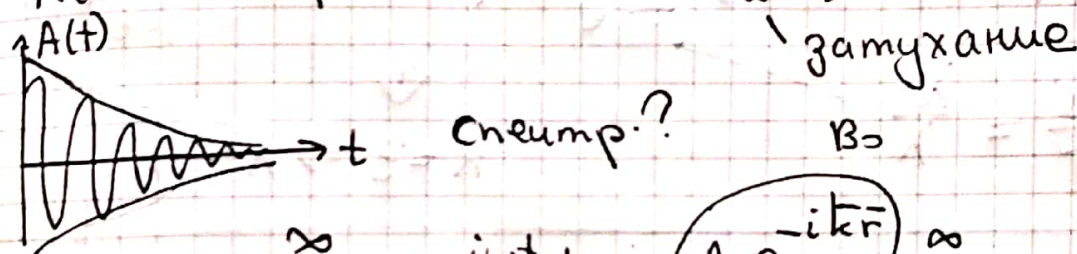 A(t)
затухание
t спектр.? B₀
∞ -ik̅r̅ ∞